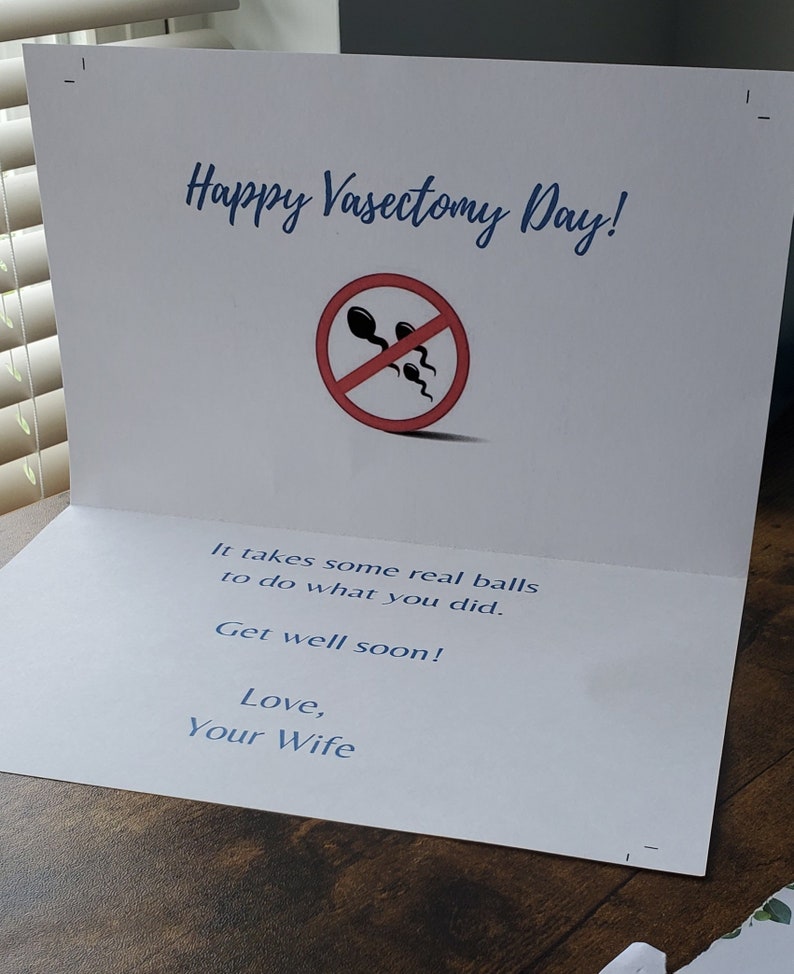 Happy Vasectomy Day!
It takes some real balls
to do what you did.
Get well soon!
Love,
Your Wife